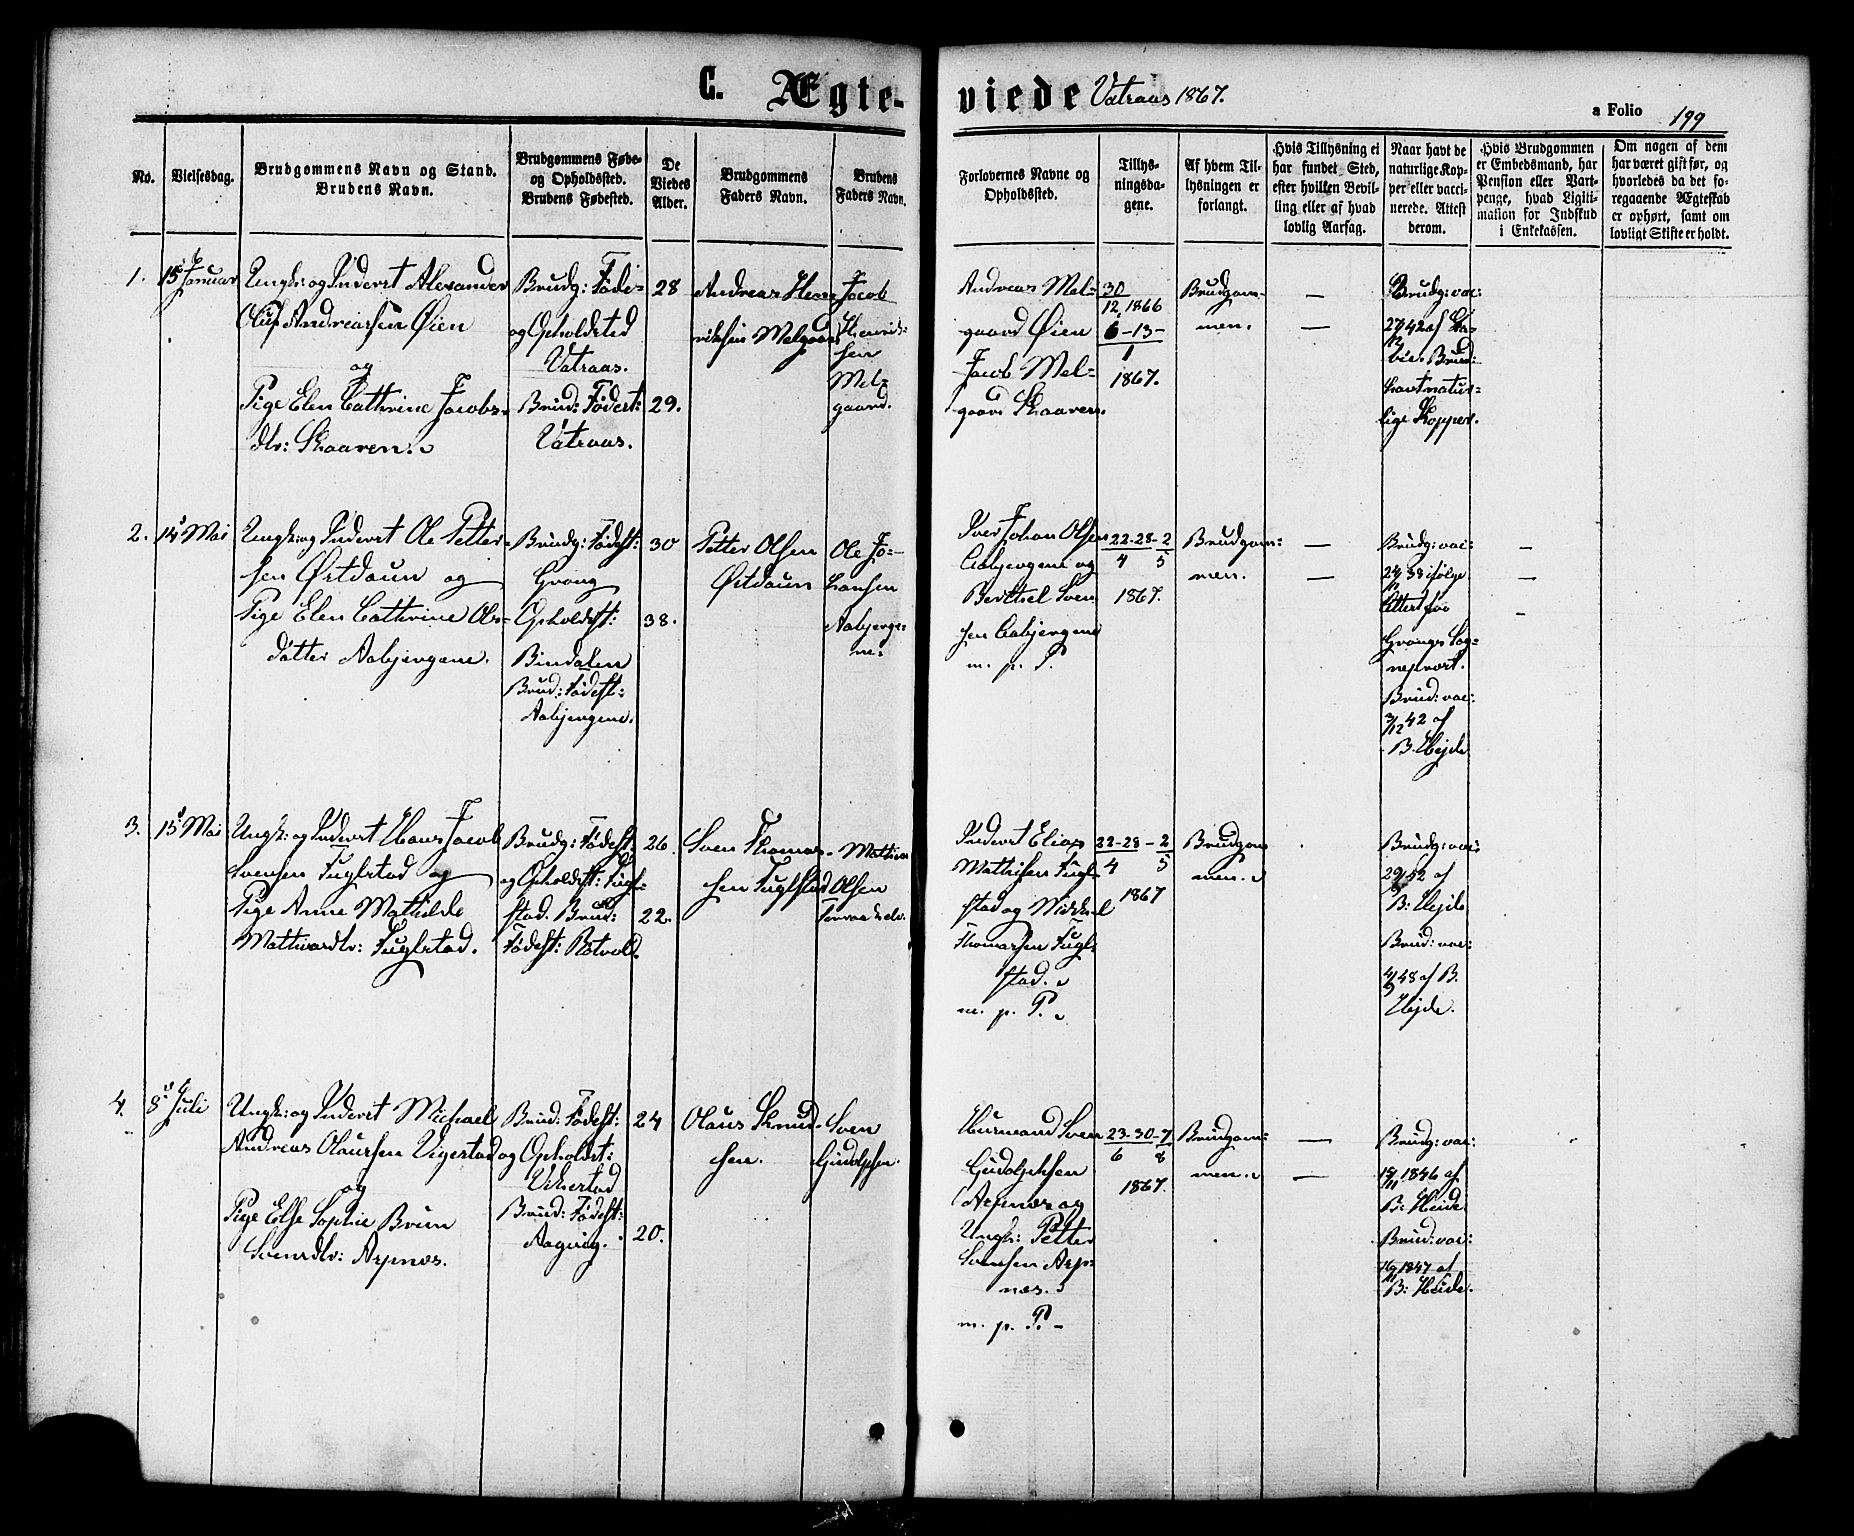 C. Ægte-viede Vatraas 1867.
a Folio 199
No.
Vielsesdag.
Brudgommens Navn og Stand.
Brudens Navn.
Brudgommens Føde-
og Opholdssted.
Brudens Fødested.
De
Viedes
Alder.
Brudgommens
Faders Navn.
Brudens
Faders Navn.
Forlovernes Navne og
Opholdssted.
Tillys-
ningsda-
gene.
Af hvem Til-
lysningen er
forlangt.
Hvis Tillysning ei
har fundet Sted,
efter hvilken Bevil-
ling eller af hvad
lovlig Aarsag.
Naar havt de
naturlige Kop-
per eller vacci-
nerede. Attest
derom.
Hvis Brudgommen
er Embedsmand, har
Pension eller Vart-
penge, hvad Ligiti-
mation for Indskud
i Enkekassen.
Om nogen af dem
har været gift før, og
hvorledes da det fo-
regaaende Ægteskab
er ophørt, samt om
lovligt Skifte er holdt.
1.
15 Januar
Ungk: og Inderst Alexander
Oluf Andreassen Øien
og
Pige Elen Cathrine Jacobs-
dtr: Skaaren.
Brudg: Føde-
og Opholdsted
Vatraas.
Brud: Fødest:
Vatraas.
28
29.
Andreas Hen-
riksen Melgaard
Jacob
Henrik-
sen
Mel-
gaard.
Andreas Mel-
gaard Øien
Jacob Mel-
gaard Skaaren.
30
12 1866
6-13-
1
1867.
Brudgom-
men.
—
—
Brudg: vac:
27/12 42 af
Brud:
havt natur-
lige Kopper.
2.
14 Mai
Ungk: og Inderst Ole Petter-
sen Ørtdaun og
Pige Elen Cathrine Ols-
datter Aabjergene.
Brudg: Fødest:
Grong
Opholdst:
Bindalen
Brud: Fødest:
Aabjergene.
30
38.
Petter Olsen
Ørtdaun
Ole Jo-
hansen
Aabjerge-
ne.
Iver Johan Olsen
Aabjergene og
Berthel Sven
sen Aabjergene
m. p. P.
22-28-2
4 5
1867.
Brudgom-
men.
—
—
Brudg: vac:
38 ifølge
Attest fra
Grongs Sog-
neprest.
Brud: vac:
3/12 42 af
B. Hejde
3.
15 Mai
Ungk: og Inderst Hans Jacob
Svensen Fuglstad og
Pige Anne Mathilde
Mathiasdtr: Fuglstad.
Brudg: Fødest:
og Opholdst: Fugl-
stad. Brud:
Fødest: Botvold.
26.
22.
Sven Thomas-
sen Fuglstad
Mathias
Olsen
Inderst Elias
Mathisen Fugl-
stad og Mikkel
Thomassen Fugl-
stad.
m. p. P.
22-28-2
4 5
1867
Brudgom
men.
Brudg: vac:
52 af
B: Hejde
Brud: vac:
48 af B.
Hejde.
4.
8 Juli
Ungk: og Inderst Michael
Andreas Olaussen Vigestad
og
Pige Else Sophie Brun
Svensdtr: Aspnæs.
Brud: Fødest:
og Opholdst:
Vikestad
Brud: Fødest:
Aagvig.
24
20.
Olaus Knud-
sen.
Sven
Gudolphsen.
Huusmand Sven
Gudolphsen
Aspnæs og
Ungk: Petter
Svensen Asp-
næs.
m. p. P.
23-30-7
6 8
1867.
Brudgom-
men.
—
—
Brudg: vac:
1846 af
B: Heide
Brud: vac:
1847 af
B: Heide.